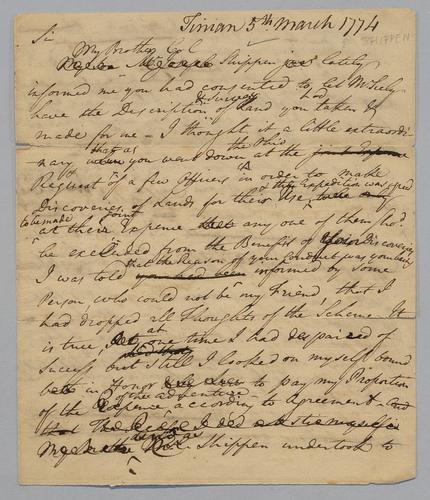 Tinian 5th March 1774
SHIPPEN
Sir
My Brother Col
Shippen lately
informed me you had consented to let
& Survey had
have the Description of Land you taken &
made for me - I thought it a little extraordi
that as the Ohio
nary when you went down at the joint Expence
Request of a few Officers in order to make
& the Expedition was agreed
Discoveries of Lands for their Use,
to be made joint
at their Expence that any one of them shod.
be excluded from the Benefit of your Discoveries
that the Reason of your Conduct was you being
I was told you had been informed by some
Person who could not be my Friend, that I
had dropped all Thoughts of the Scheme. It
at
is true, one time I had despaired of
Success but still I looked on myself bound
both in Honor to pay my Proportion
of the adventure
of the Expence according to agreement and
that
My Brother Shippen undertook to